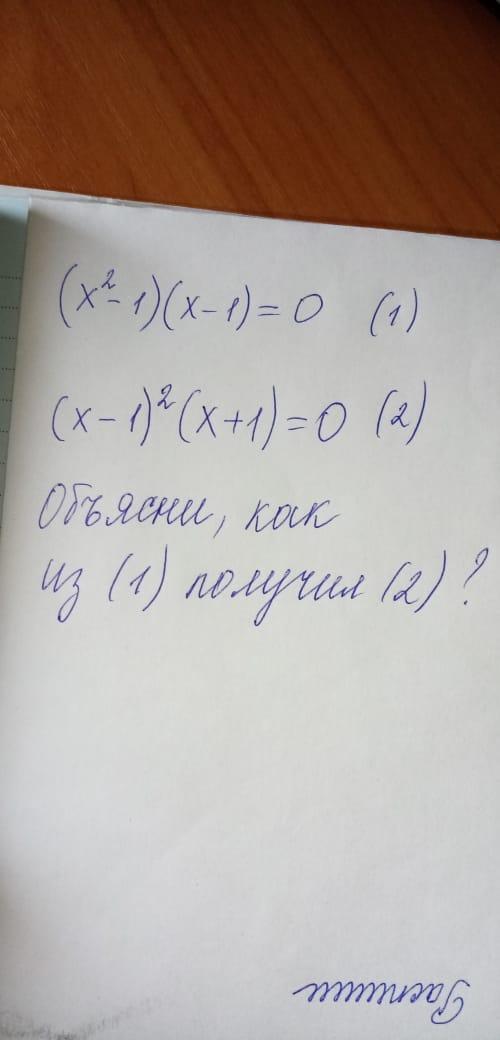 (x²-1)(x-1)=0 (1)
(x-1)²(x+1)=0 (2)
Объясни, как
из (1) получил (2)?
Распиши